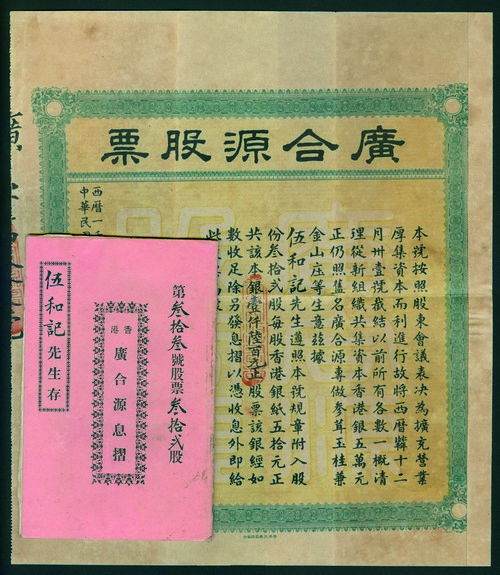 廣合源股票
本號按照股東會議表决為擴充營業
厚集資本而利進行故將西曆十二
月卅壹號截結以前所有各數一概清
理從新組織共集資本香港銀五萬元
正仍照舊名廣合源專做參茸玉桂兼
金山庄等生意茲據
伍和記先生遵照本號規章附入股
份叁拾弍股每股香港銀紙五拾元正
共該本銀壹仟陸百元正股票該銀經如
數收足除另發息摺以憑收息外即給
此
西曆一
中華民
第叁拾叁號股票叁拾弍股
香港
廣合源息摺
伍和記先生存